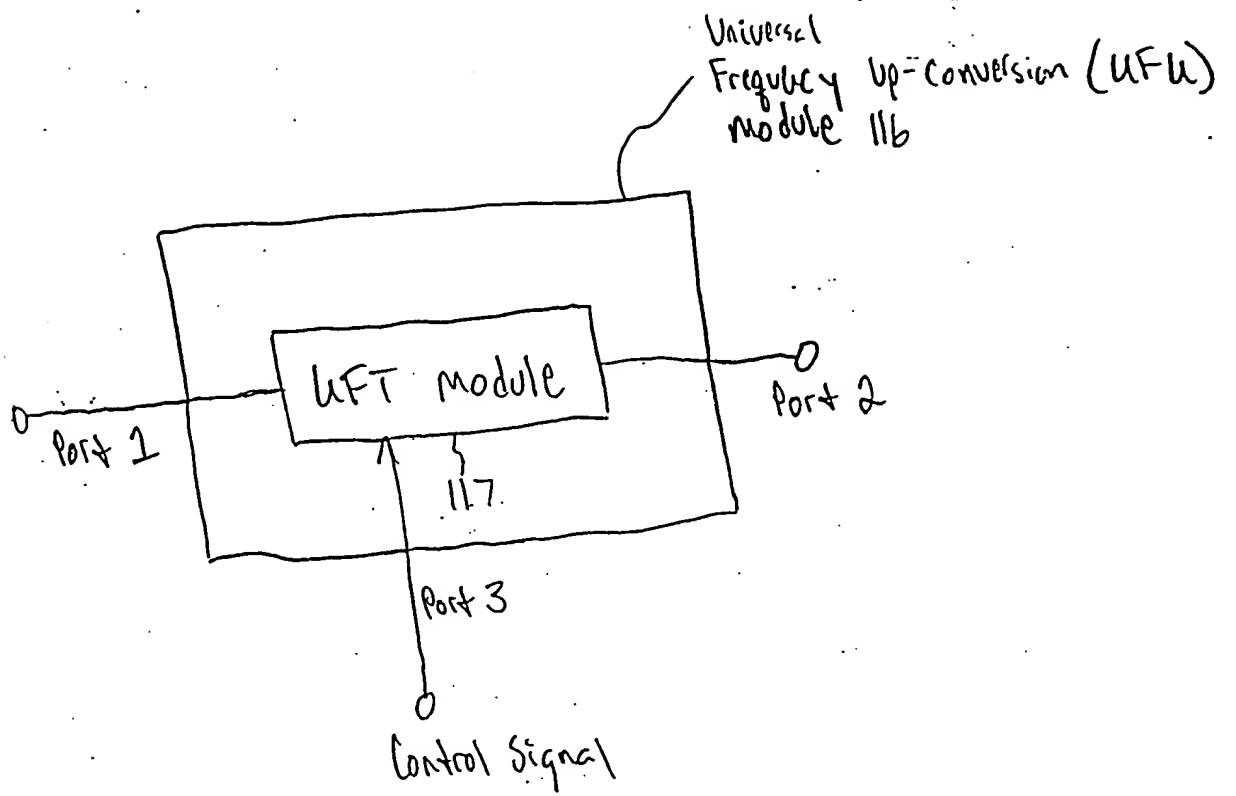 Universal
Frequecy Up-Conversion (UFU)
module 116
UFT module
Port 1
Port 2
117
Port 3
Control Signal